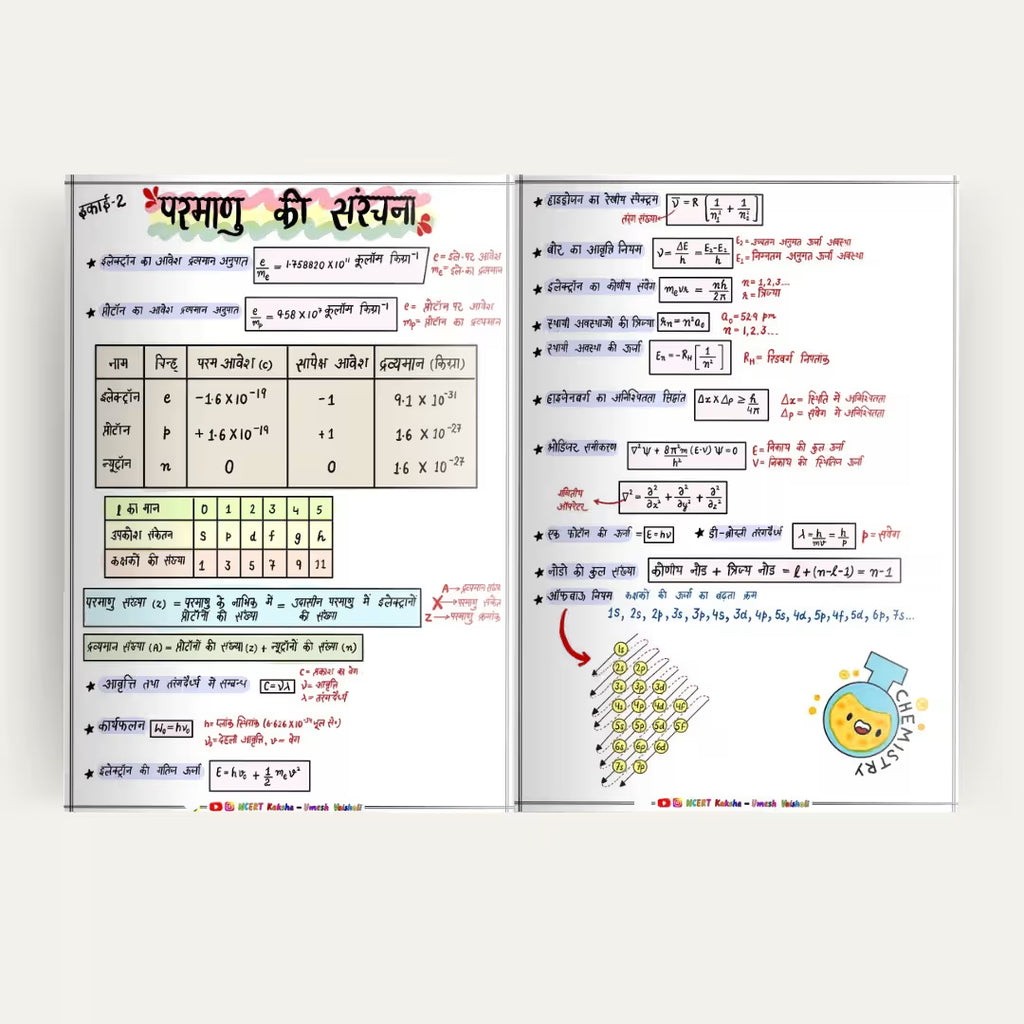 इकाई-2
परमाणु की संरचना
★ इलेक्ट्रॉन का आवेश द्रव्यमान अनुपात e/mₑ = 1.758820 X10¹¹ कूलॉम किग्रा⁻¹
e = इले. पर आवेश
mₑ = इले. का द्रव्यमान
★ प्रोटॉन का आवेश द्रव्यमान अनुपात e/mₚ = 9.58 X10⁷ कूलॉम किग्रा⁻¹
e = प्रोटॉन पर आवेश
mₚ = प्रोटॉन का द्रव्यमान
नाम चिन्ह परम आवेश (c) सापेक्ष आवेश द्रव्यमान (किग्रा)
इलेक्ट्रॉन e -1.6 X10⁻¹⁹ -1 9.1 X 10⁻³¹
प्रोटॉन p +1.6X10⁻¹⁹ +1 1.6 X 10⁻²⁷
न्यूट्रॉन n 0 0 1.6 X 10⁻²⁷
l का मान 0 1 2 3 4 5
उपकोश संकेतन s p d f g h
कक्षकों की संख्या 1 3 5 7 9 11
परमाणु संख्या (z) = परमाणु के नाभिक में प्रोटॉनों की संख्या = उदासीन परमाणु में इलेक्ट्रानों की संख्या
A → द्रव्यमान संख्या
X → परमाणु संकेत
Z → परमाणु क्रमांक
द्रव्यमान संख्या (A) = प्रोटॉनों की संख्या (z) + न्यूट्रॉनों की संख्या (n)
★ आवृत्ति तथा तरंगदैर्ध्य में सम्बन्ध C = νλ
C = प्रकाश का वेग
ν = आवृत्ति
λ = तरंगदैर्ध्य
★ कार्यफलन W₀ = hν₀
h = प्लांक स्थिरांक (6.626X10⁻³⁴ जूल से०)
ν₀ = देहली आवृत्ति, v = वेग
★ इलेक्ट्रॉन की गतिज ऊर्जा E = hν₀ + 1/2 mₑv²
NCERT Kaksha - Umesh Vaishali
★ हाइड्रोजन का रेखीय स्पेक्ट्रम ν̅ = R [1/n₁² + 1/n₂²]
तरंग संख्या
★ बोर का आवृत्ति नियम ν = ΔE/h = E₂-E₁/h
E₂ = उच्चतम अनुमत ऊर्जा अवस्था
E₁ = निम्नतम अनुमत ऊर्जा अवस्था
★ इलेक्ट्रॉन का कोणीय संवेग mₑvr = nh/2π
n = 1,2,3...
r = त्रिज्या
★ स्थायी अवस्थाओं की त्रिज्या rₙ = n²a₀
a₀ = 52.9 pm
n = 1,2,3...
★ स्थायी अवस्था की ऊर्जा Eₙ = -R_H [1/n²] R_H = रिडबर्ग नियतांक
★ हाइजेनबर्ग का अनिश्चितता सिद्धांत Δx X Δp ≥ h/4π
Δx = स्थिति में अनिश्चितता
Δp = संवेग में अनिश्चितता
★ श्रोडिंजर समीकरण ∇²ψ + 8π²m/h² (E-V) ψ = 0
E = निकाय की कुल ऊर्जा
V = निकाय की स्थितिज ऊर्जा
ऑपरेटर ∇² = ∂²/∂x² + ∂²/∂y² + ∂²/∂z²
★ एक फोटॉन की ऊर्जा = E = hν ★ डी-ब्रोग्ली तरंगदैर्ध्य λ = h/mv = h/p p = संवेग
★ नोडो की कुल संख्या कोणीय नोड + त्रिज्य नोड = l + (n-l-1) = n-1
★ ऑफबाऊ नियम कक्षकों की ऊर्जा का बढ़ता क्रम
1s, 2s, 2p, 3s, 3p, 4s, 3d, 4p, 5s, 4d, 5p, 4f, 5d, 6p, 7s...
1s
2s 2p
3s 3p 3d
4s 4p 4d 4f
5s 5p 5d 5f
6s 6p 6d
7s 7p
CHEMISTRY
NCERT Kaksha - Umesh Vaishali